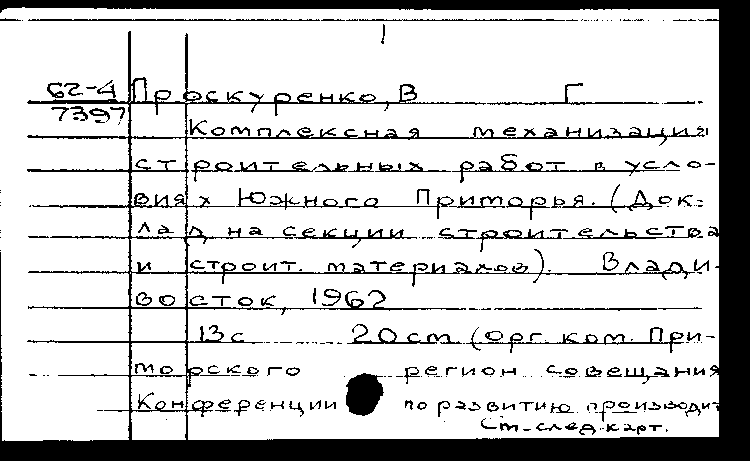 1
62-4 Проскуренко, В Г
7397
Комплексная механизация
строительных работ в усло-
виях Южного Приморья. (Док-
лад на секции строительства
и строит. материалов). Влади-
восток, 1962
13с 20см (Орг. ком. При-
морского регион совещания
Конференции по развитию производит
См-след.карт.